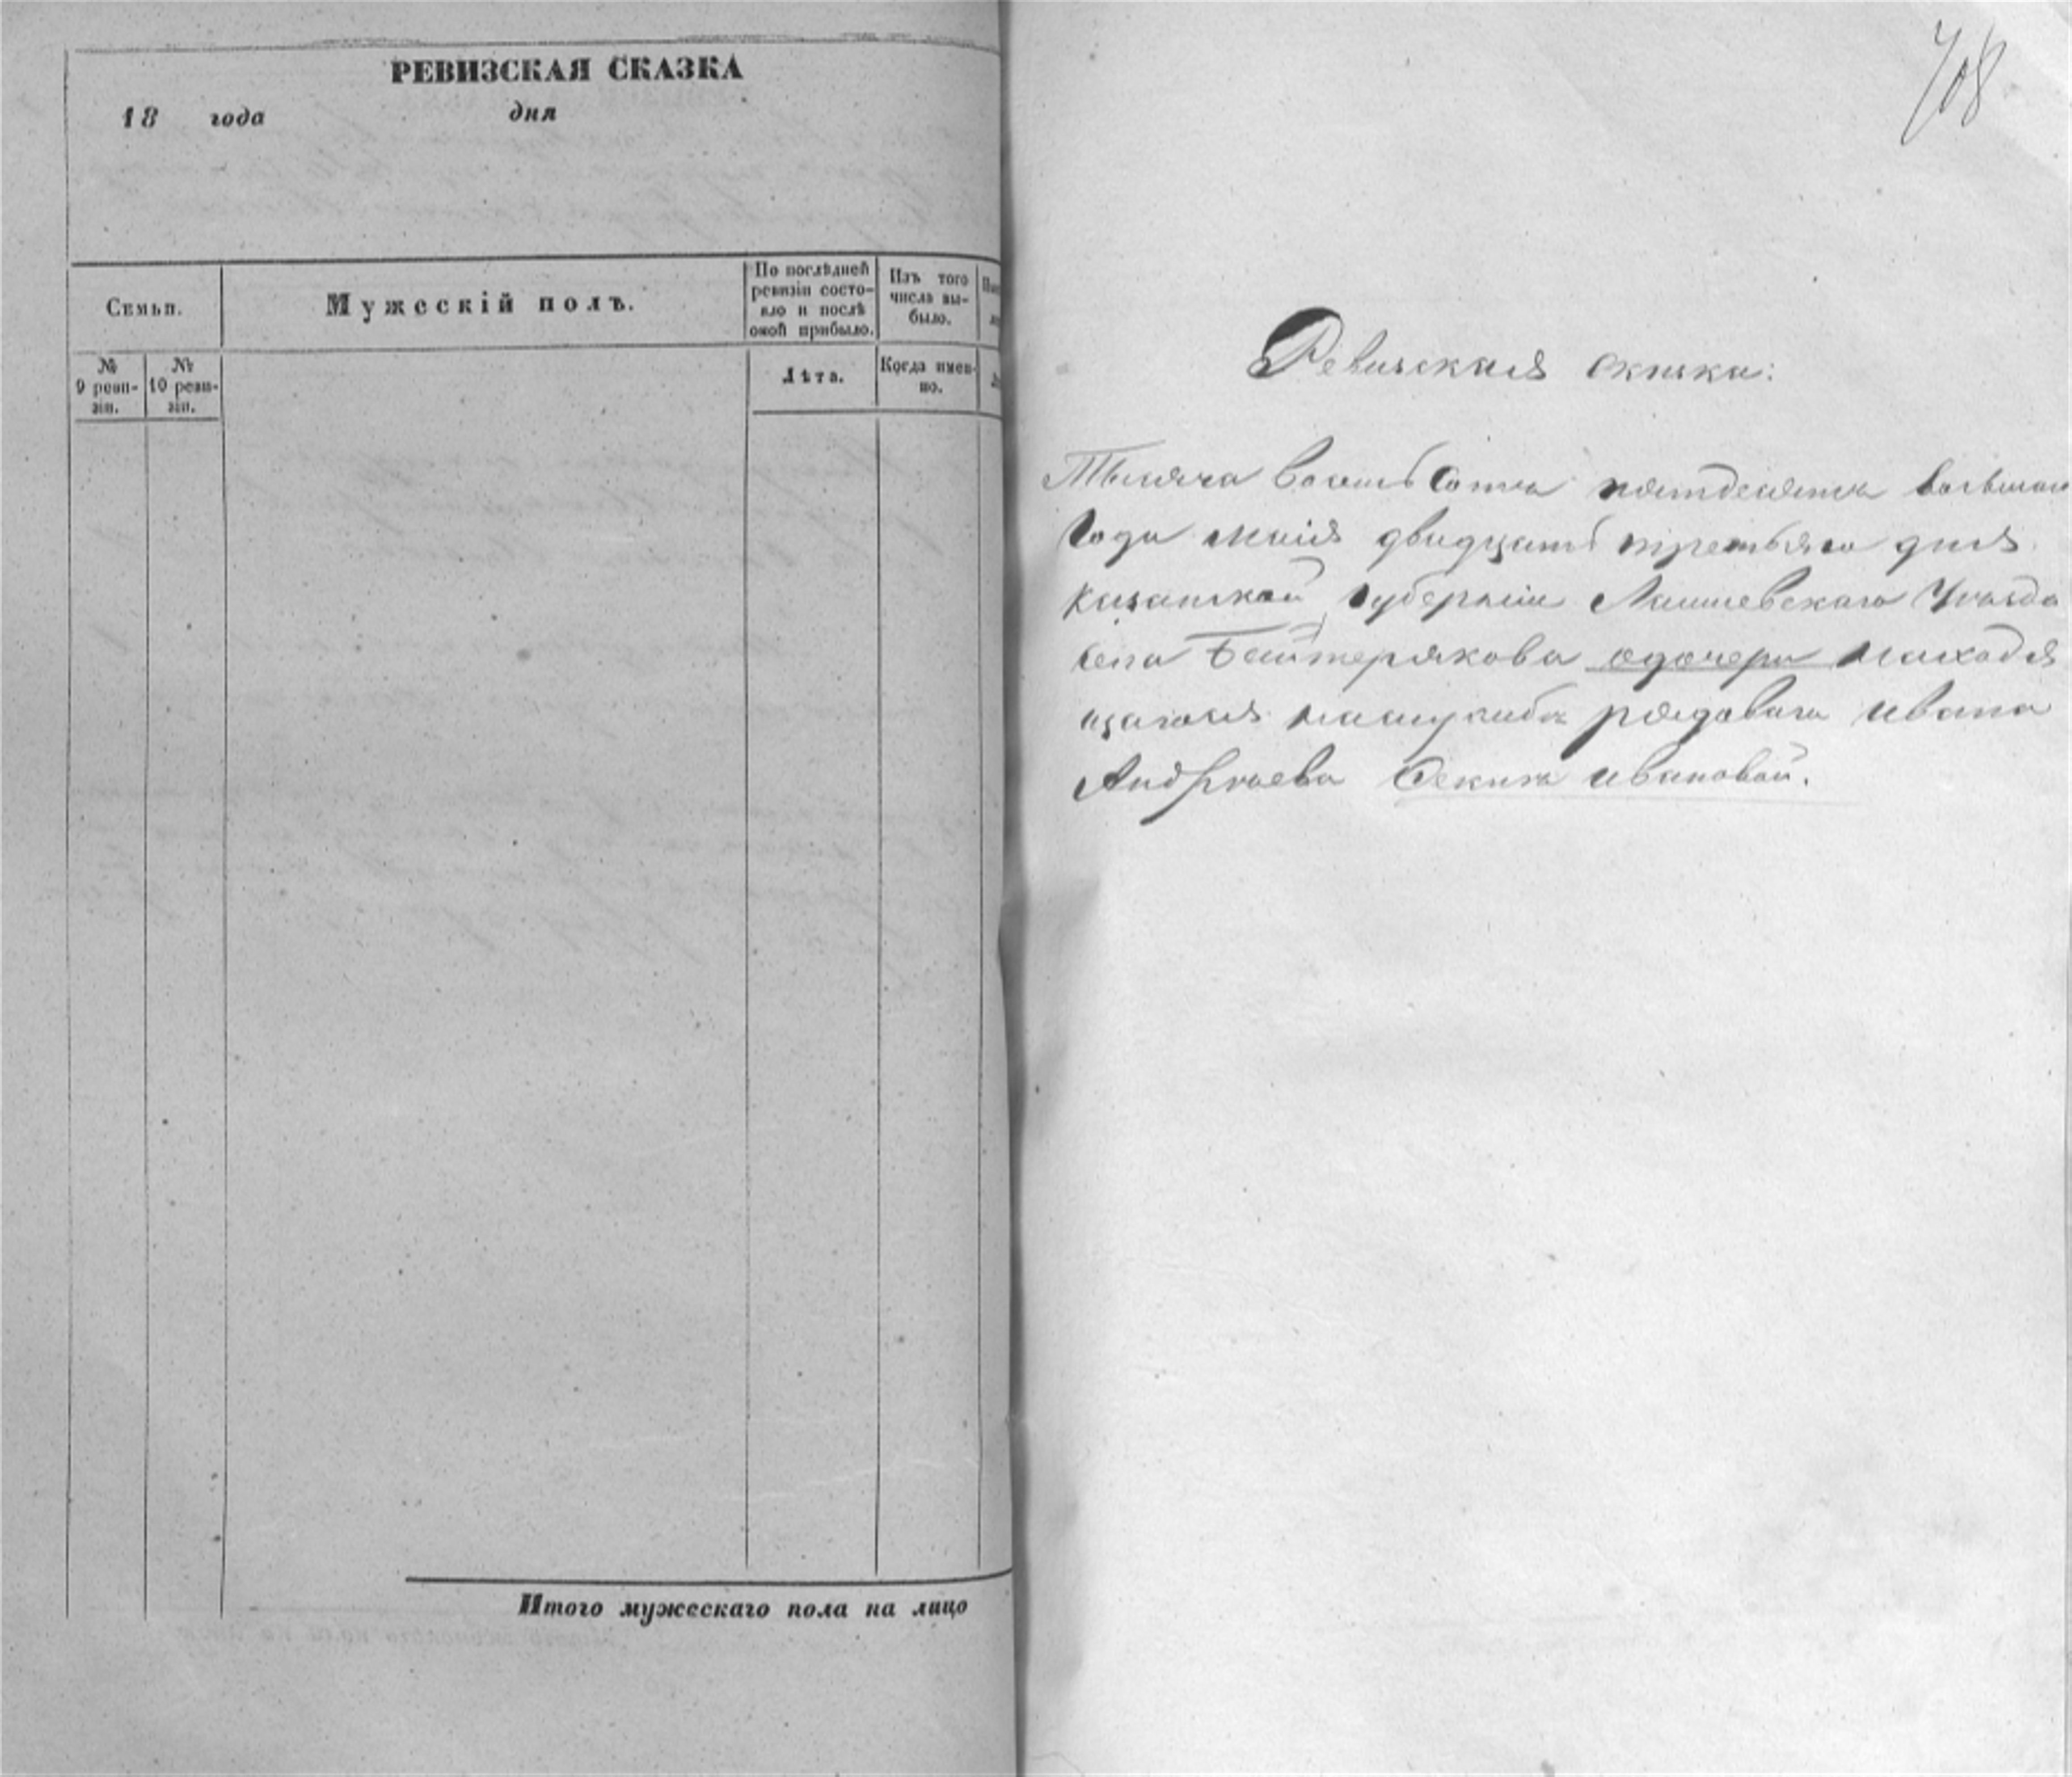 РЕВИЗСКАЯ СКАЗКА
18 года дня
Семьи.
Мужескій полъ.
По послѣдней
ревизіи состо-
яло и послѣ
оной прибыло.
Изъ того
числа вы-
было.
№
9 реви-
зіи.
№
10 реви-
зіи.
Лѣта.
Когда имен-
но.
Итого мужескаго пола на лицо
708
Ревизская сказка:
Тысяча восемьсотъ пятьдесятъ восьмаго
Года маія двадцать третьяго дня
Казанской Губерніи Лаишевскаго Уѣзда
села Байтерякова одочери находя
щагося наслужбѣ рядоваго ивана
Андрѣева ивановой.